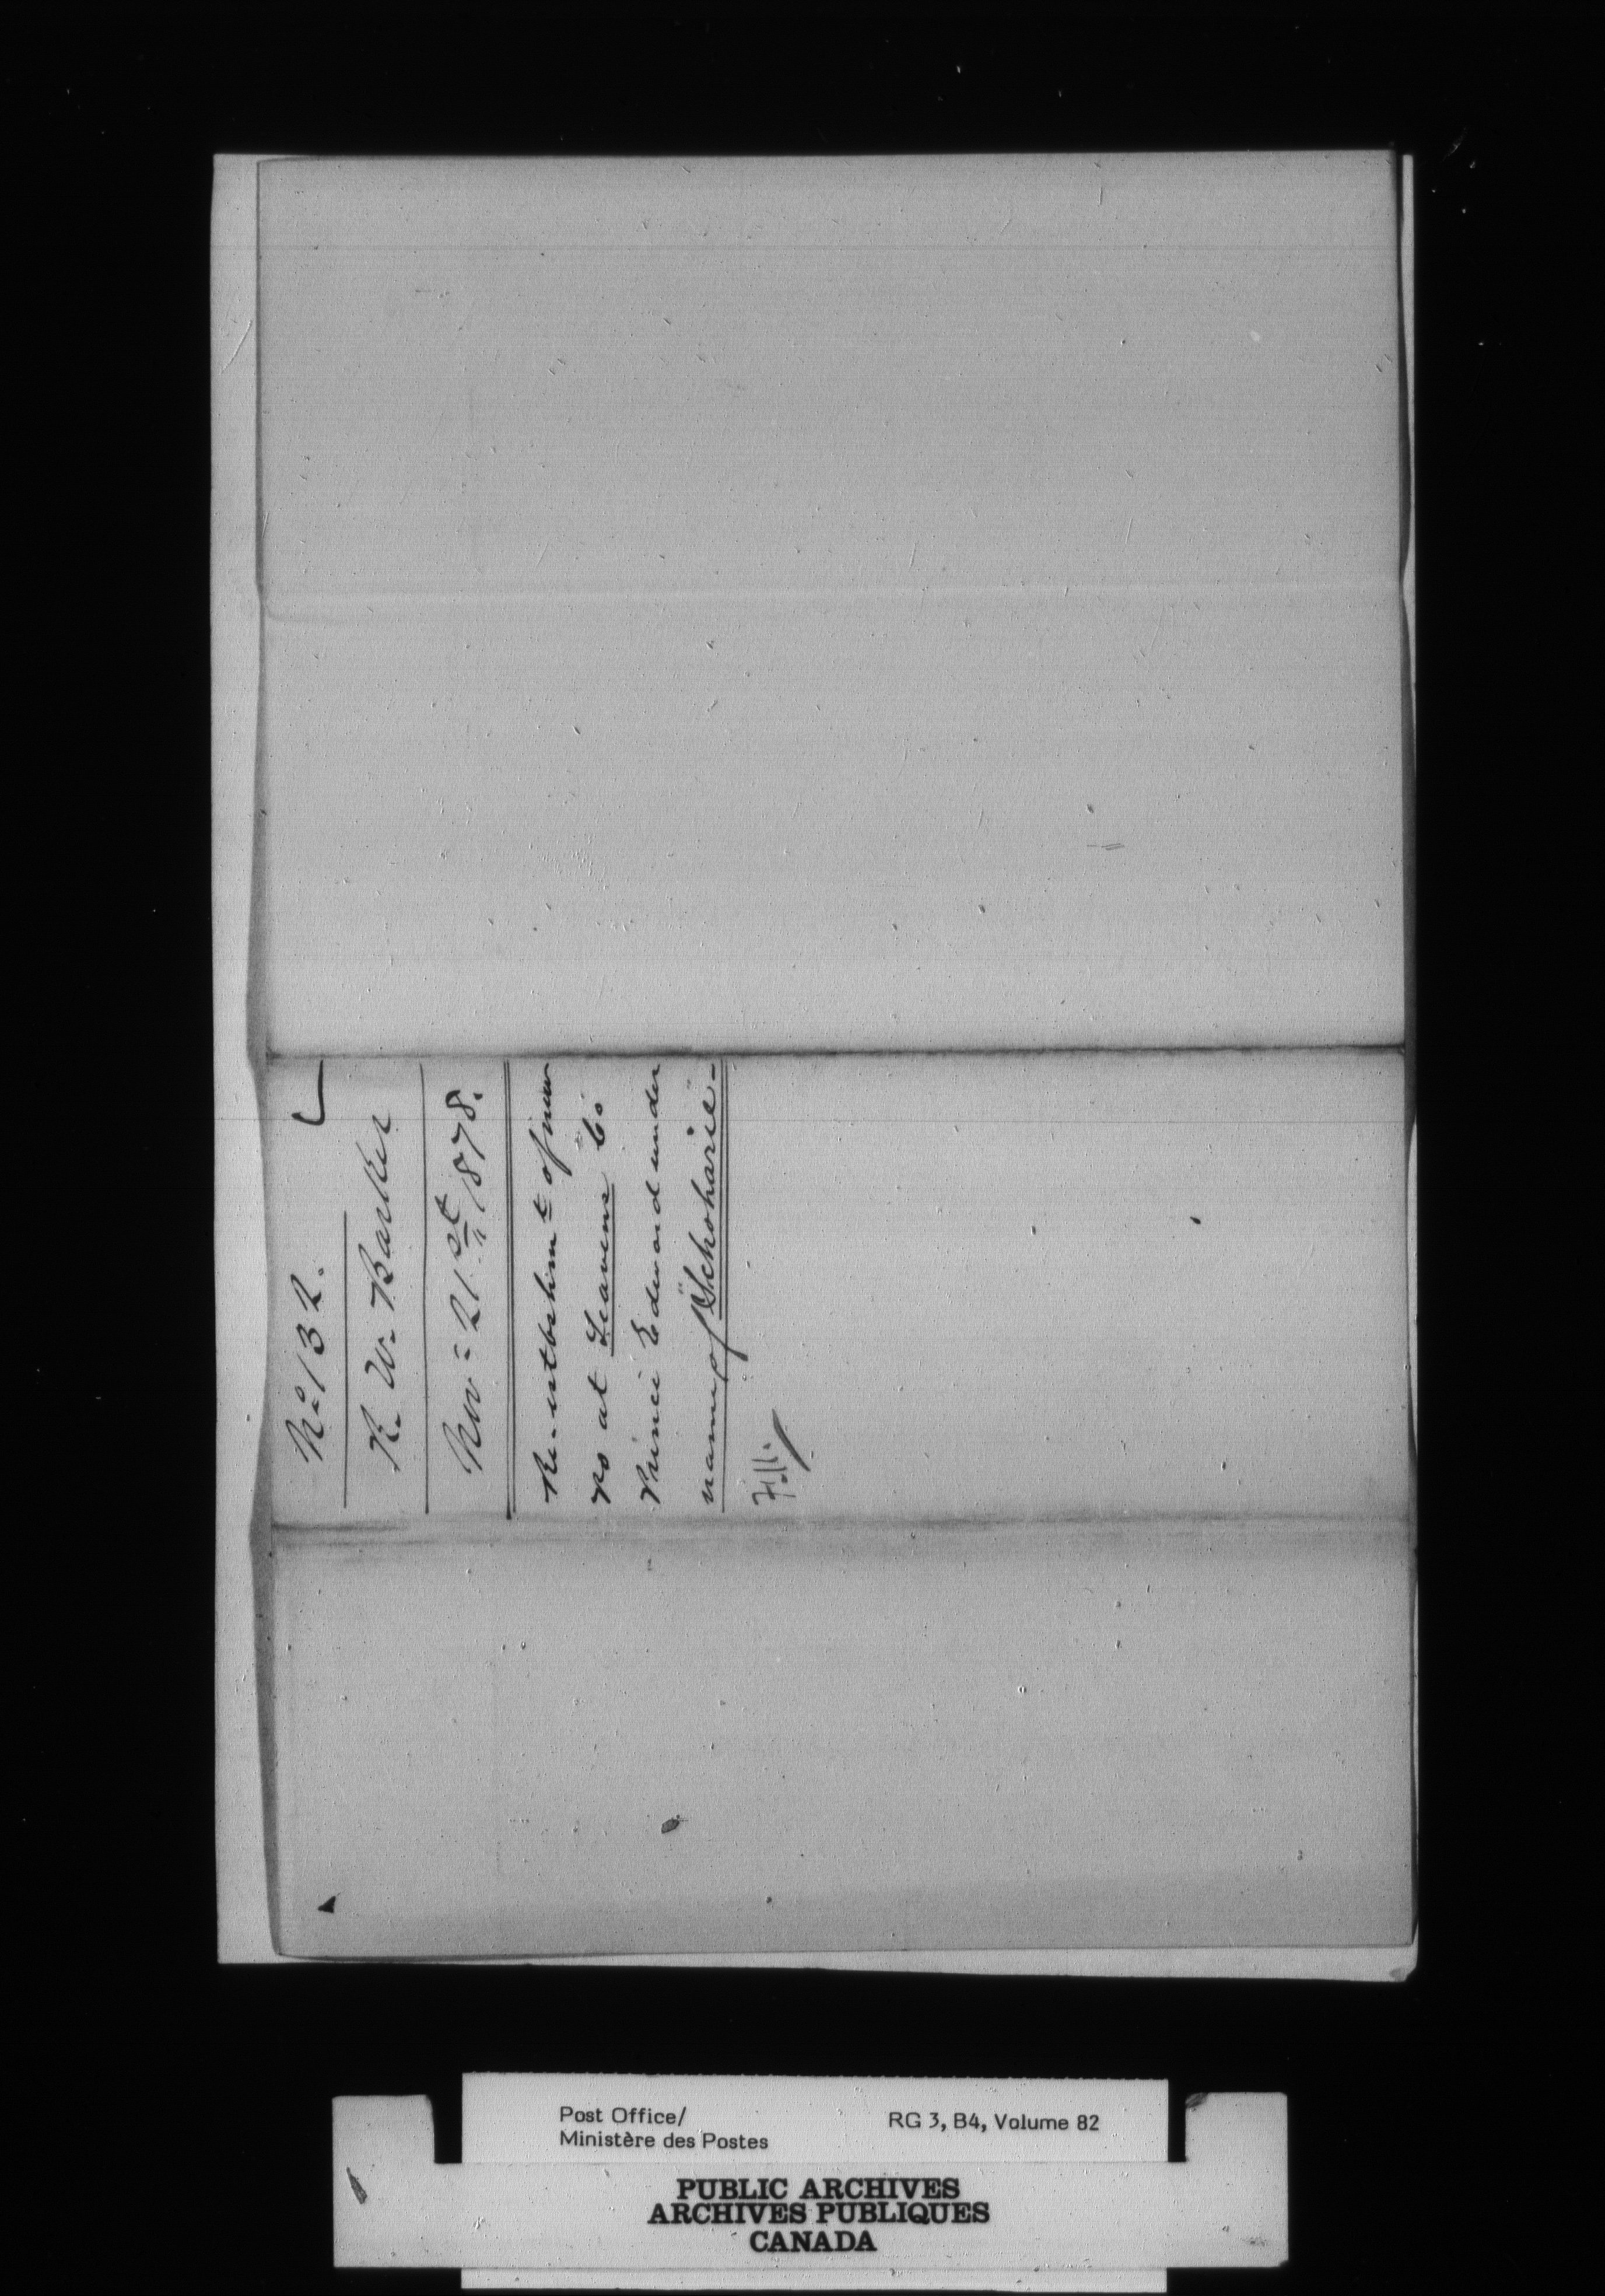 No 132.
R. W. Barker
Nov = 21st 1878.
Re- estbshmt of new
PO at Leavens Co
Prince Edward under
name of "Schoharie" -
Post Office/
Ministère des Postes
RG 3, B4, Volume 82
PUBLIC ARCHIVES
ARCHIVES PUBLIQUES
CANADA